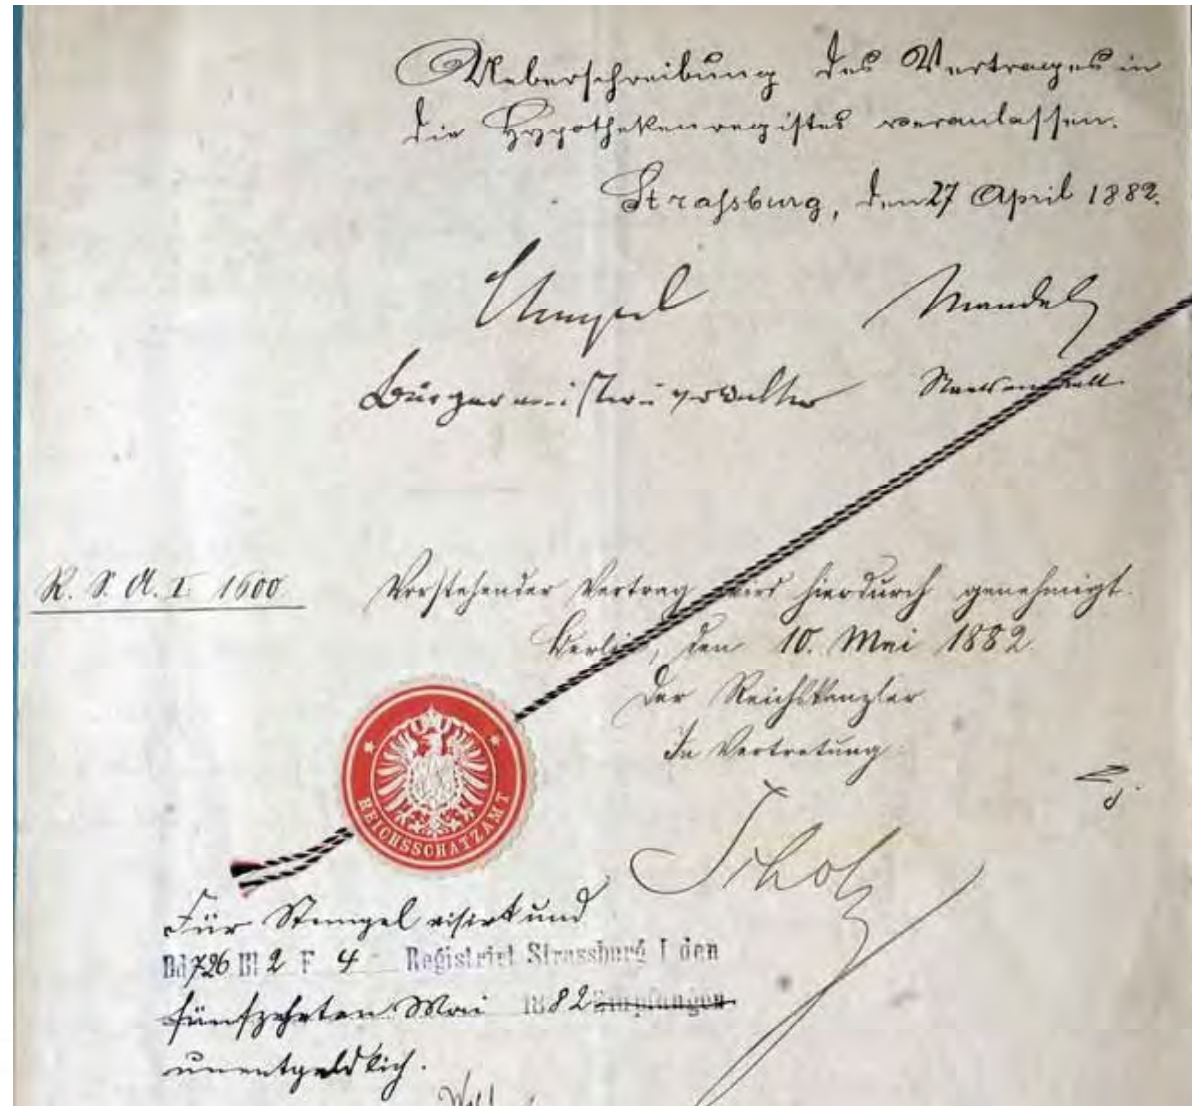 Ueberschreibung des Vertrages in
die Hypothekenregister veranlassen.
Strassburg, den 27 April 1882.
Stempel Mandel
Bürgermeistereiverwalter Staatsanwalt
R. S. A. I. 1600.
Vorstehender Vertrag wird hierdurch genehmigt.
Berlin, den 10. Mai 1882.
Der Reichskanzler
In Vertretung:
REICHSSCHATZAMT
Scholz
Für Stempel visirt und
Bd 726 Bl 2 F 4 Registrirt Strassburg I den
fünfzehnten Mai 1882 Empfangen
unentgeldlich.